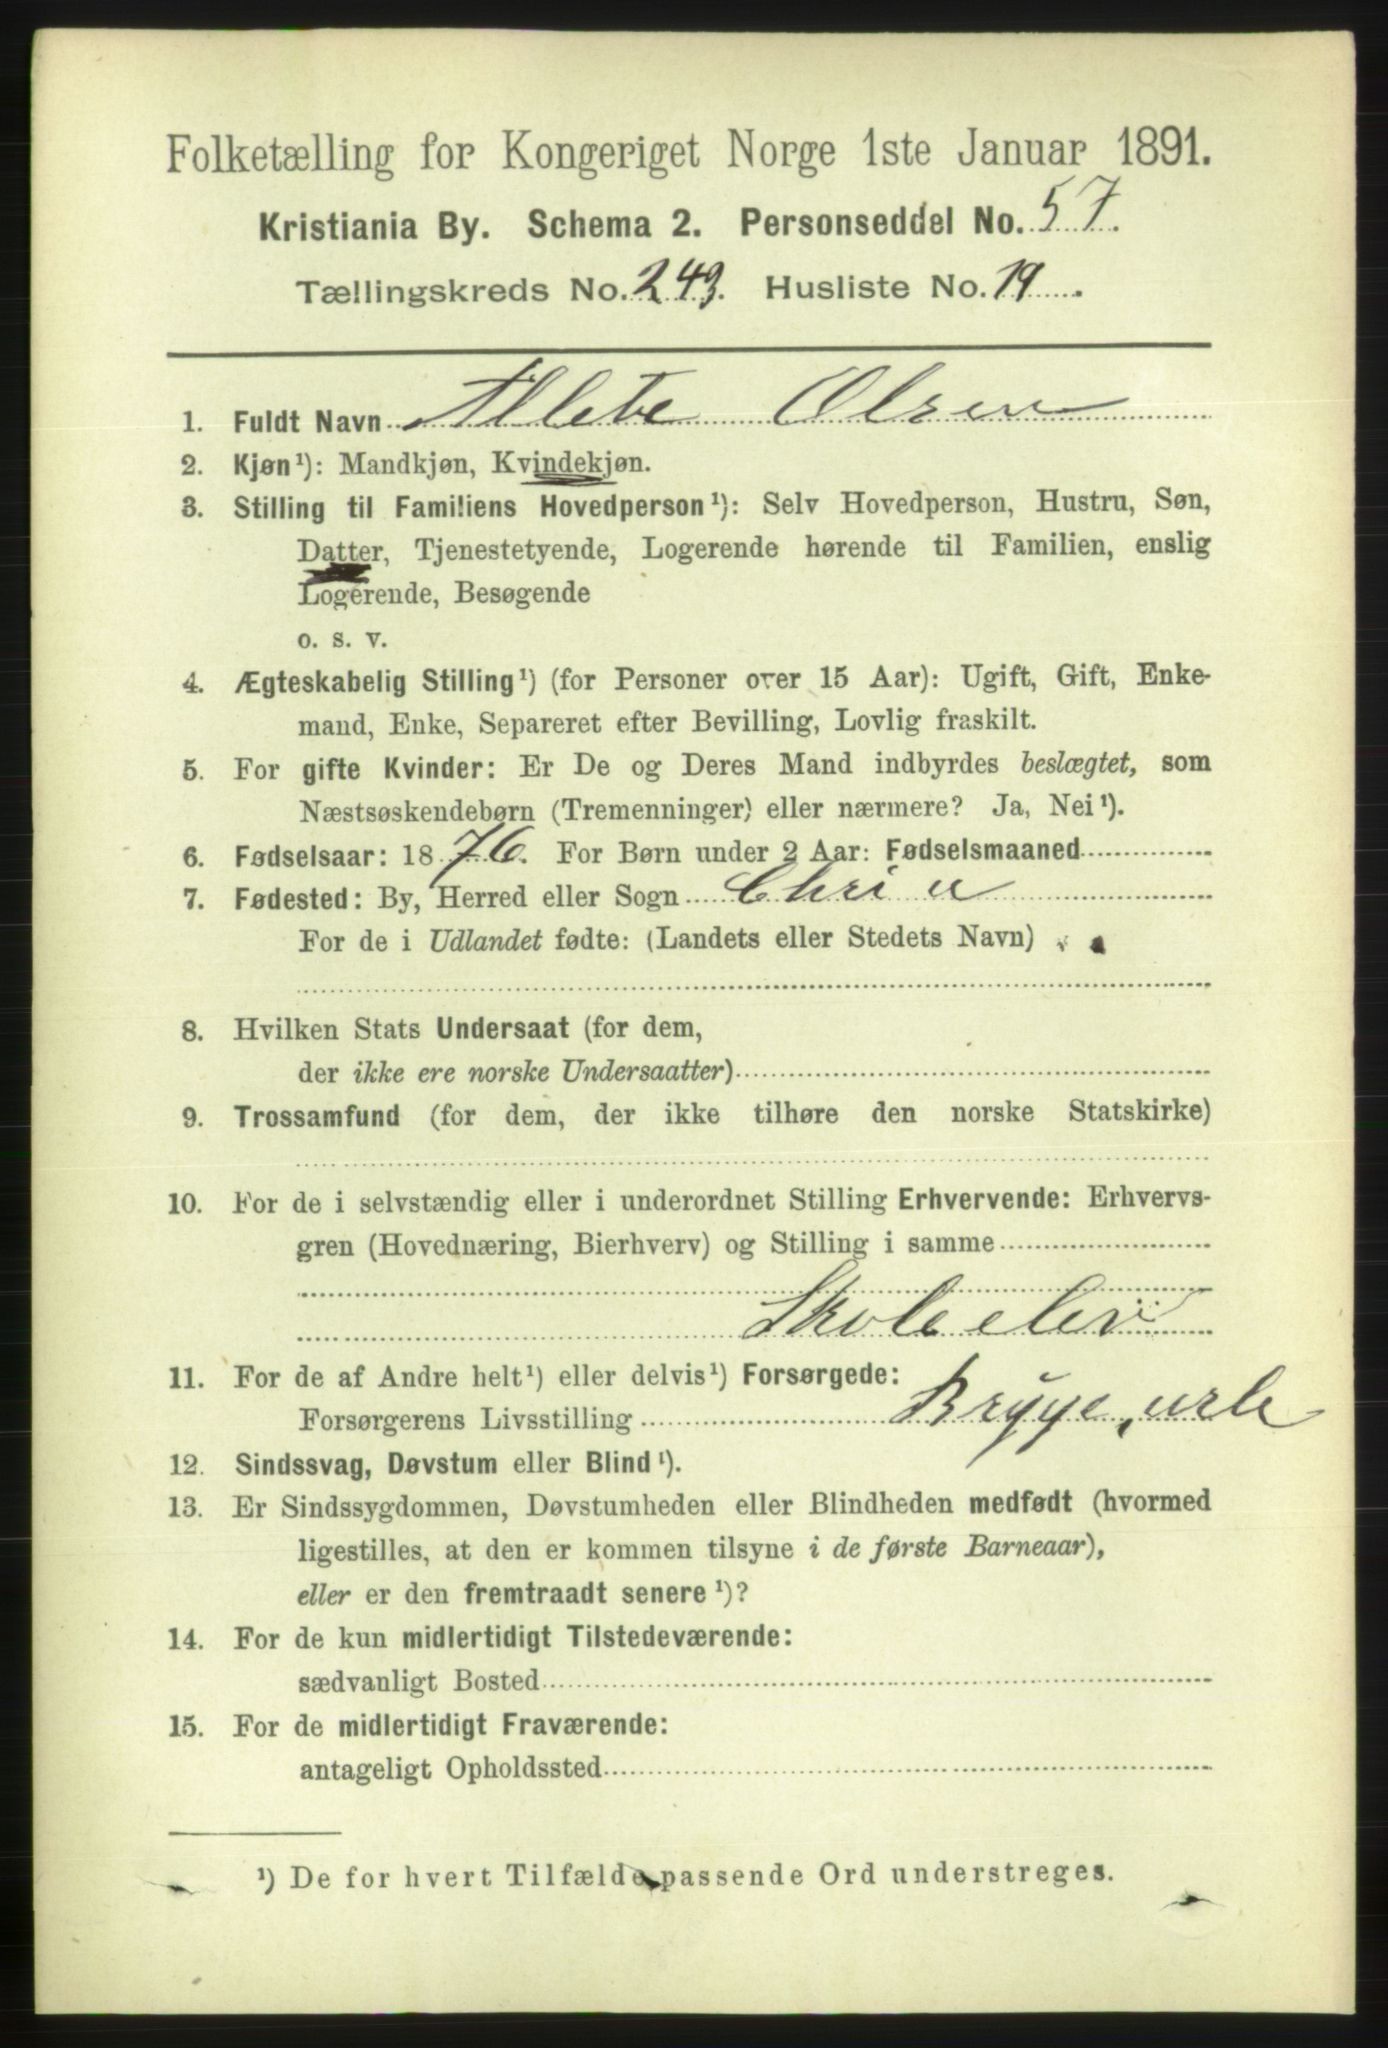 Folketælling for Kongeriget Norge 1ste Januar 1891.
Kristiania By. Schema 2. Personseddel No. 57.
Tællingskreds No. 243. Husliste No. 19.
1. Fuldt Navn Olsen
2. Kjøn¹): Mandkjøn, Kvindekjøn.
3. Stilling til Familiens Hovedperson¹): Selv Hovedperson, Hustru, Søn,
Datter, Tjenestetyende, Logerende hørende til Familien, enslig
Logerende, Besøgende
o. s. v.
4. Ægteskabelig Stilling¹) (for Personer over 15 Aar): Ugift, Gift, Enke-
mand, Enke, Separeret efter Bevilling, Lovlig fraskilt.
5. For gifte Kvinder: Er De og Deres Mand indbyrdes beslægtet, som
Næstsøskendebørn (Tremenninger) eller nærmere? Ja, Nei¹).
6. Fødselsaar: 1876. For Børn under 2 Aar: Fødselsmaaned
7. Fødested: By, Herred eller Sogn Chria
For de i Udlandet fødte: (Landets eller Stedets Navn)
8. Hvilken Stats Undersaat (for dem,
der ikke ere norske Undersaatter)
9. Trossamfund (for dem, der ikke tilhøre den norske Statskirke)
10. For de i selvstændig eller i underordnet Stilling Erhvervende: Erhvervs-
gren (Hovednæring, Bierhverv) og Stilling i samme
Skoleelev
11. For de af Andre helt¹) eller delvis¹) Forsørgede:
Forsørgerens Livsstilling
12. Sindssvag, Døvstum eller Blind¹).
13. Er Sindssygdommen, Døvstumheden eller Blindheden medfødt (hvormed
ligestilles, at den er kommen tilsyne i de første Barneaar),
eller er den fremtraadt senere¹)?
14. For de kun midlertidigt Tilstedeværende:
sædvanligt Bosted
15. For de midlertidigt Fraværende:
antageligt Opholdssted
¹) De for hvert Tilfælde passende Ord understreges.